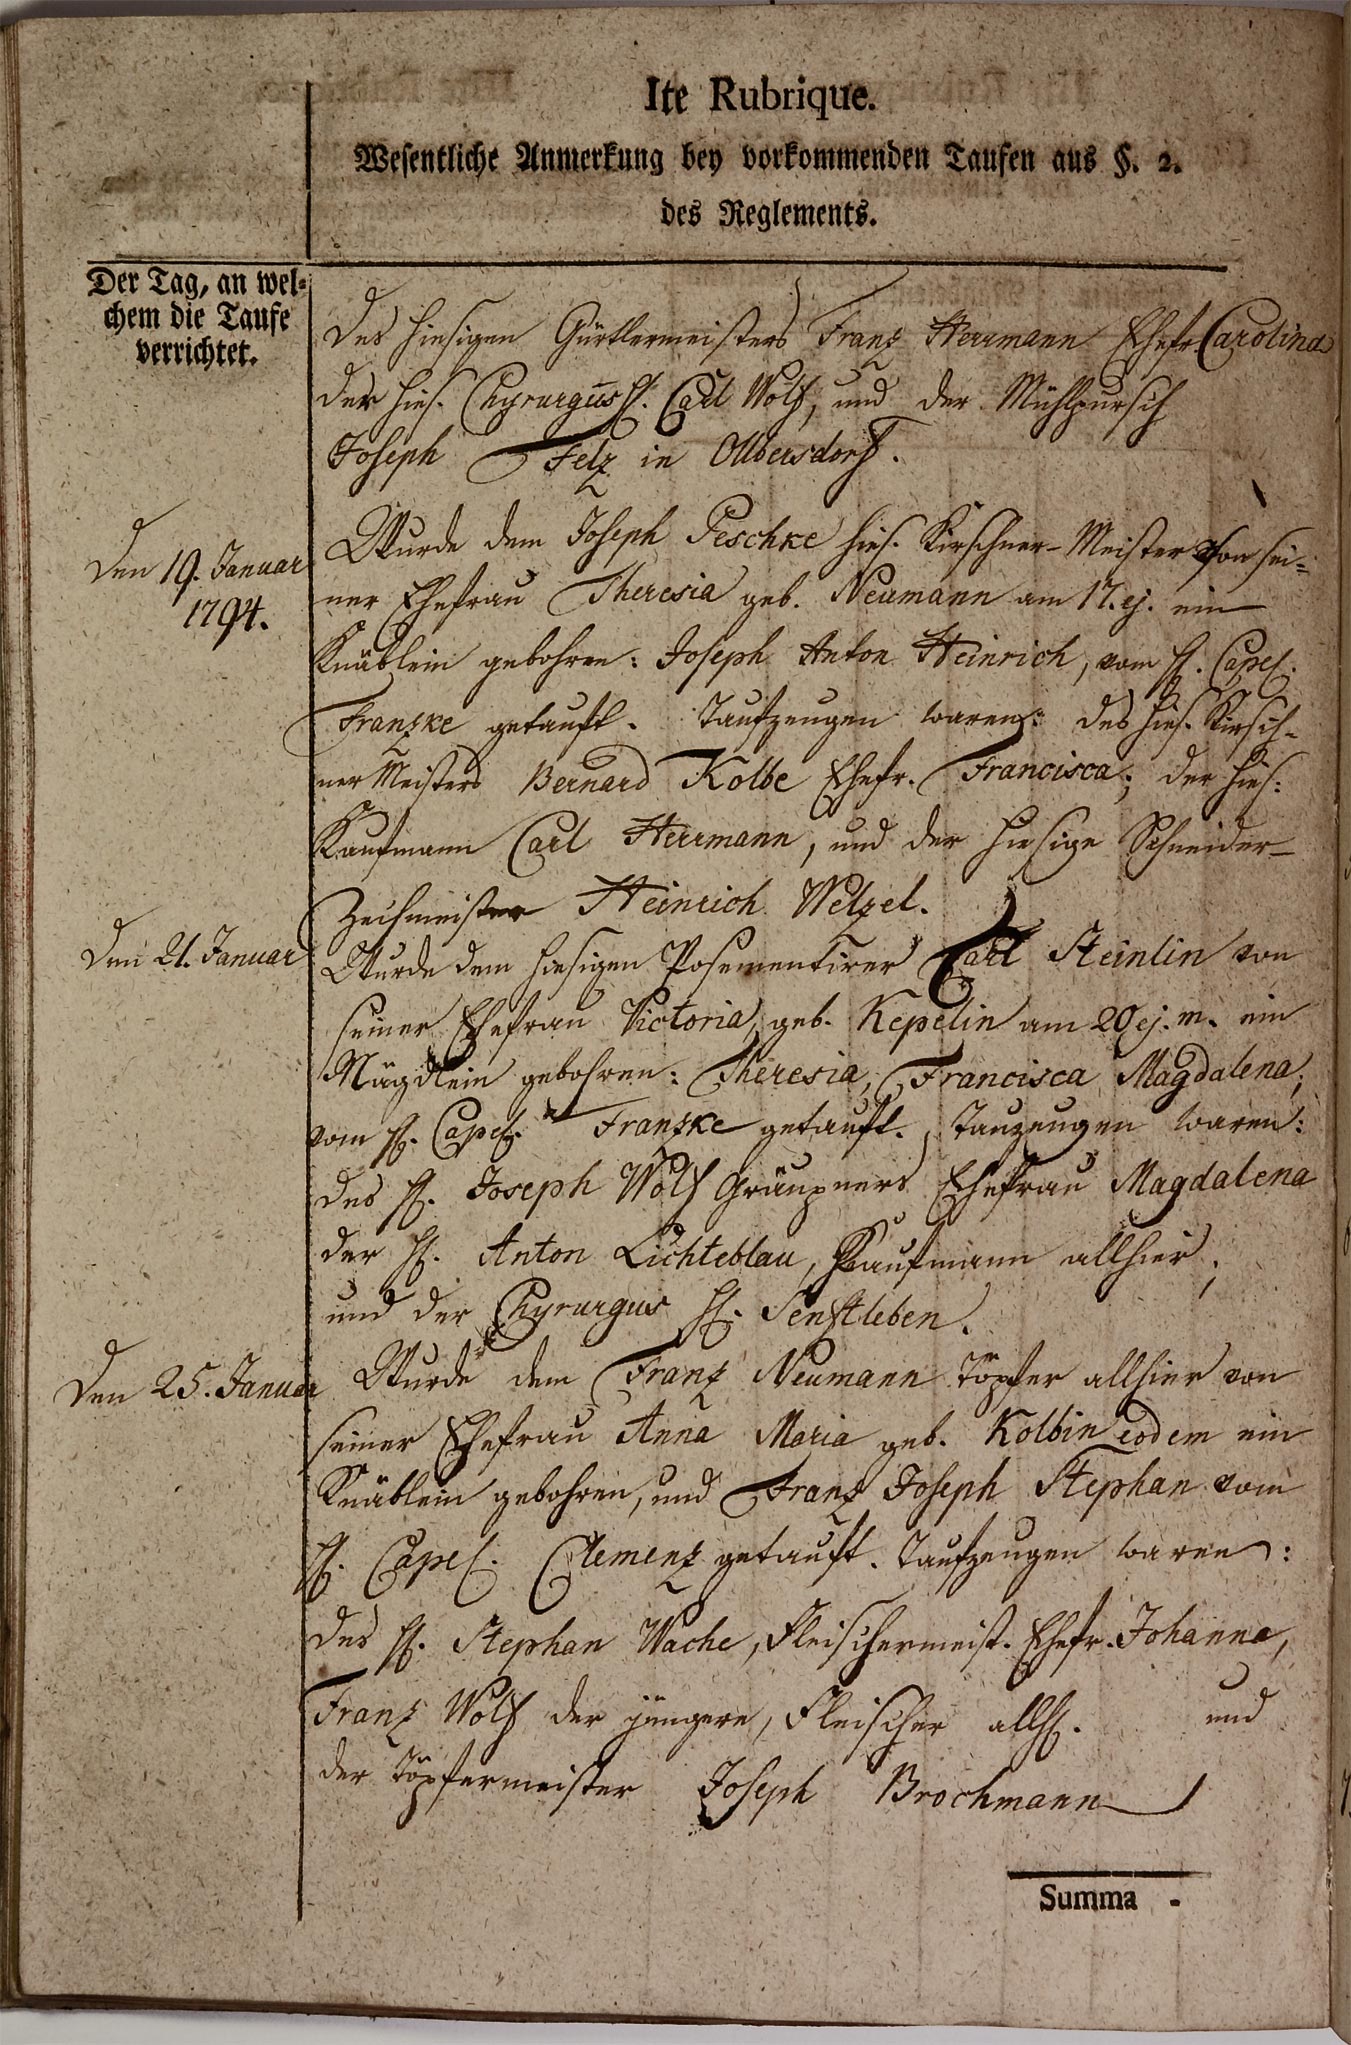 Ite Rubrique.
Wesentliche Anmerkung bey vorkommenden Taufen aus §. 2.
des Reglements.
Der Tag, an wel-
chem die Taufe
verrichtet.
des hiesigen Gürtlermeisters Franz Herrmann Ehefr. Carolina
der hies. Chyrurgus H. Carl Wolf, und der Mühlpursch
Joseph Felz in Olbersdorf.
Den 19. Januar
1794.
Wurde dem Joseph Peschke hies. Kirschner-Meister von sei-
ner Ehefrau Theresia geb. Neumann am 17. ej. ein
Knäblein gebohren: Joseph Anton Heinrich, vom H. Capel.
Franzke getauft. Taufzeugen waren: des hies. Kirsch-
ner Meisters Bernard Kolbe Ehefr. Francisca; der hies:
Kaufmann Carl Herrmann, und der hiesige Schneider-
Zechmeister Heinrich Welzel.
Den 21. Januar
Wurde dem hiesigen Posementirer Carl Steinlin von
seiner Ehefrau Victoria, geb. Kepelin am 20 ej. m. ein
Mägdlein gebohren: Theresia, Francisca Magdalena;
vom H. Capel. Franzke getauft. Tauzeugen waren:
des H. Joseph Wolf Gräupners Ehefrau Magdalena
der H. Anton Lichteblau, Kaufmann allhier,
und der Chyrurgus H. Senftleben.
Den 25. Januar
Wurde dem Franz Neumann Töpfer allhier von
seiner Ehefrau Anna Maria geb. Kolbin eodem ein
Knäblein gebohren, und Franz Joseph Stephan vom
H. Capel. Clemenz getauft. Taufzeugen waren:
des H. Stephan Wache, Fleischermeist. Ehefr. Johanna,
Franz Wolf der jüngere, Fleischer allh. und
der Töpfermeister Joseph Brochmann
Summa -